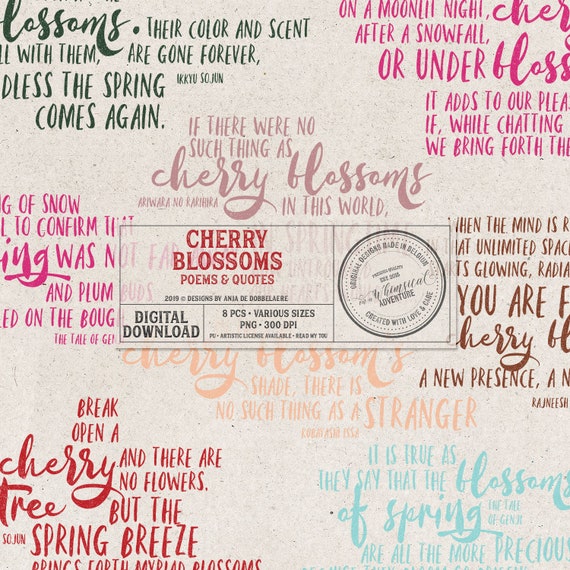 blossoms • THEIR COLOR AND SCENT
FALL WITH THEM, ARE GONE FOREVER,
DLESS THE SPRING
IKKYU SOJUN
COMES AGAIN.
ON A MOONLIT NIGHT, cherry
AFTER A SNOWFALL,
OR UNDER blossoms
IT ADDS TO OUR PLEA
IF, WHILE CHATTING
WE BRING FORTH THE
IF THERE WERE NO
SUCH THING AS
cherry blossoms
ARIWARA NO NARIHIRA
IN THIS WORLD,
SPRING
NG OF SNOW
L TO CONFIRM THAT
spring WAS NOT FAR
AND PLUM BUDS
ED ON THE BOUGH
THE TALE OF GENJI
CHERRY
BLOSSOMS
POEMS & QUOTES
2019 © DESIGNS BY ANJA DE DOBBELAERE
DIGITAL
DOWNLOAD
8 PCS • VARIOUS SIZES
PNG • 300 DPI
PU • ARTISTIC LICENSE AVAILABLE • READ MY TOU
ORIGINAL DESIGNS MADE IN BELGIUM
PREMIUM QUALITY
Whimsical
ADVENTURE
CREATED WITH LOVE & CARE
WHEN THE MIND IS R
THAT UNLIMITED SPAC
TS GLOWING, RADIA
YOU ARE F
cherry blo
A NEW PRESENCE, A N
RAJNEESH
cherry blossoms
SHADE, THERE IS
NO SUCH THING AS A STRANGER
KOBAYASHI ISSA
BREAK
OPEN A
cherry AND THERE ARE
NO FLOWERS.
tree BUT THE
SOJUN
SPRING BREEZE
BRINGS FORTH MYRIAD BLOSSOMS
IT IS TRUE AS
THEY SAY THAT THE blossoms
of spring
THE TALE
OF GENJI
ARE ALL THE MORE PRECIOUS